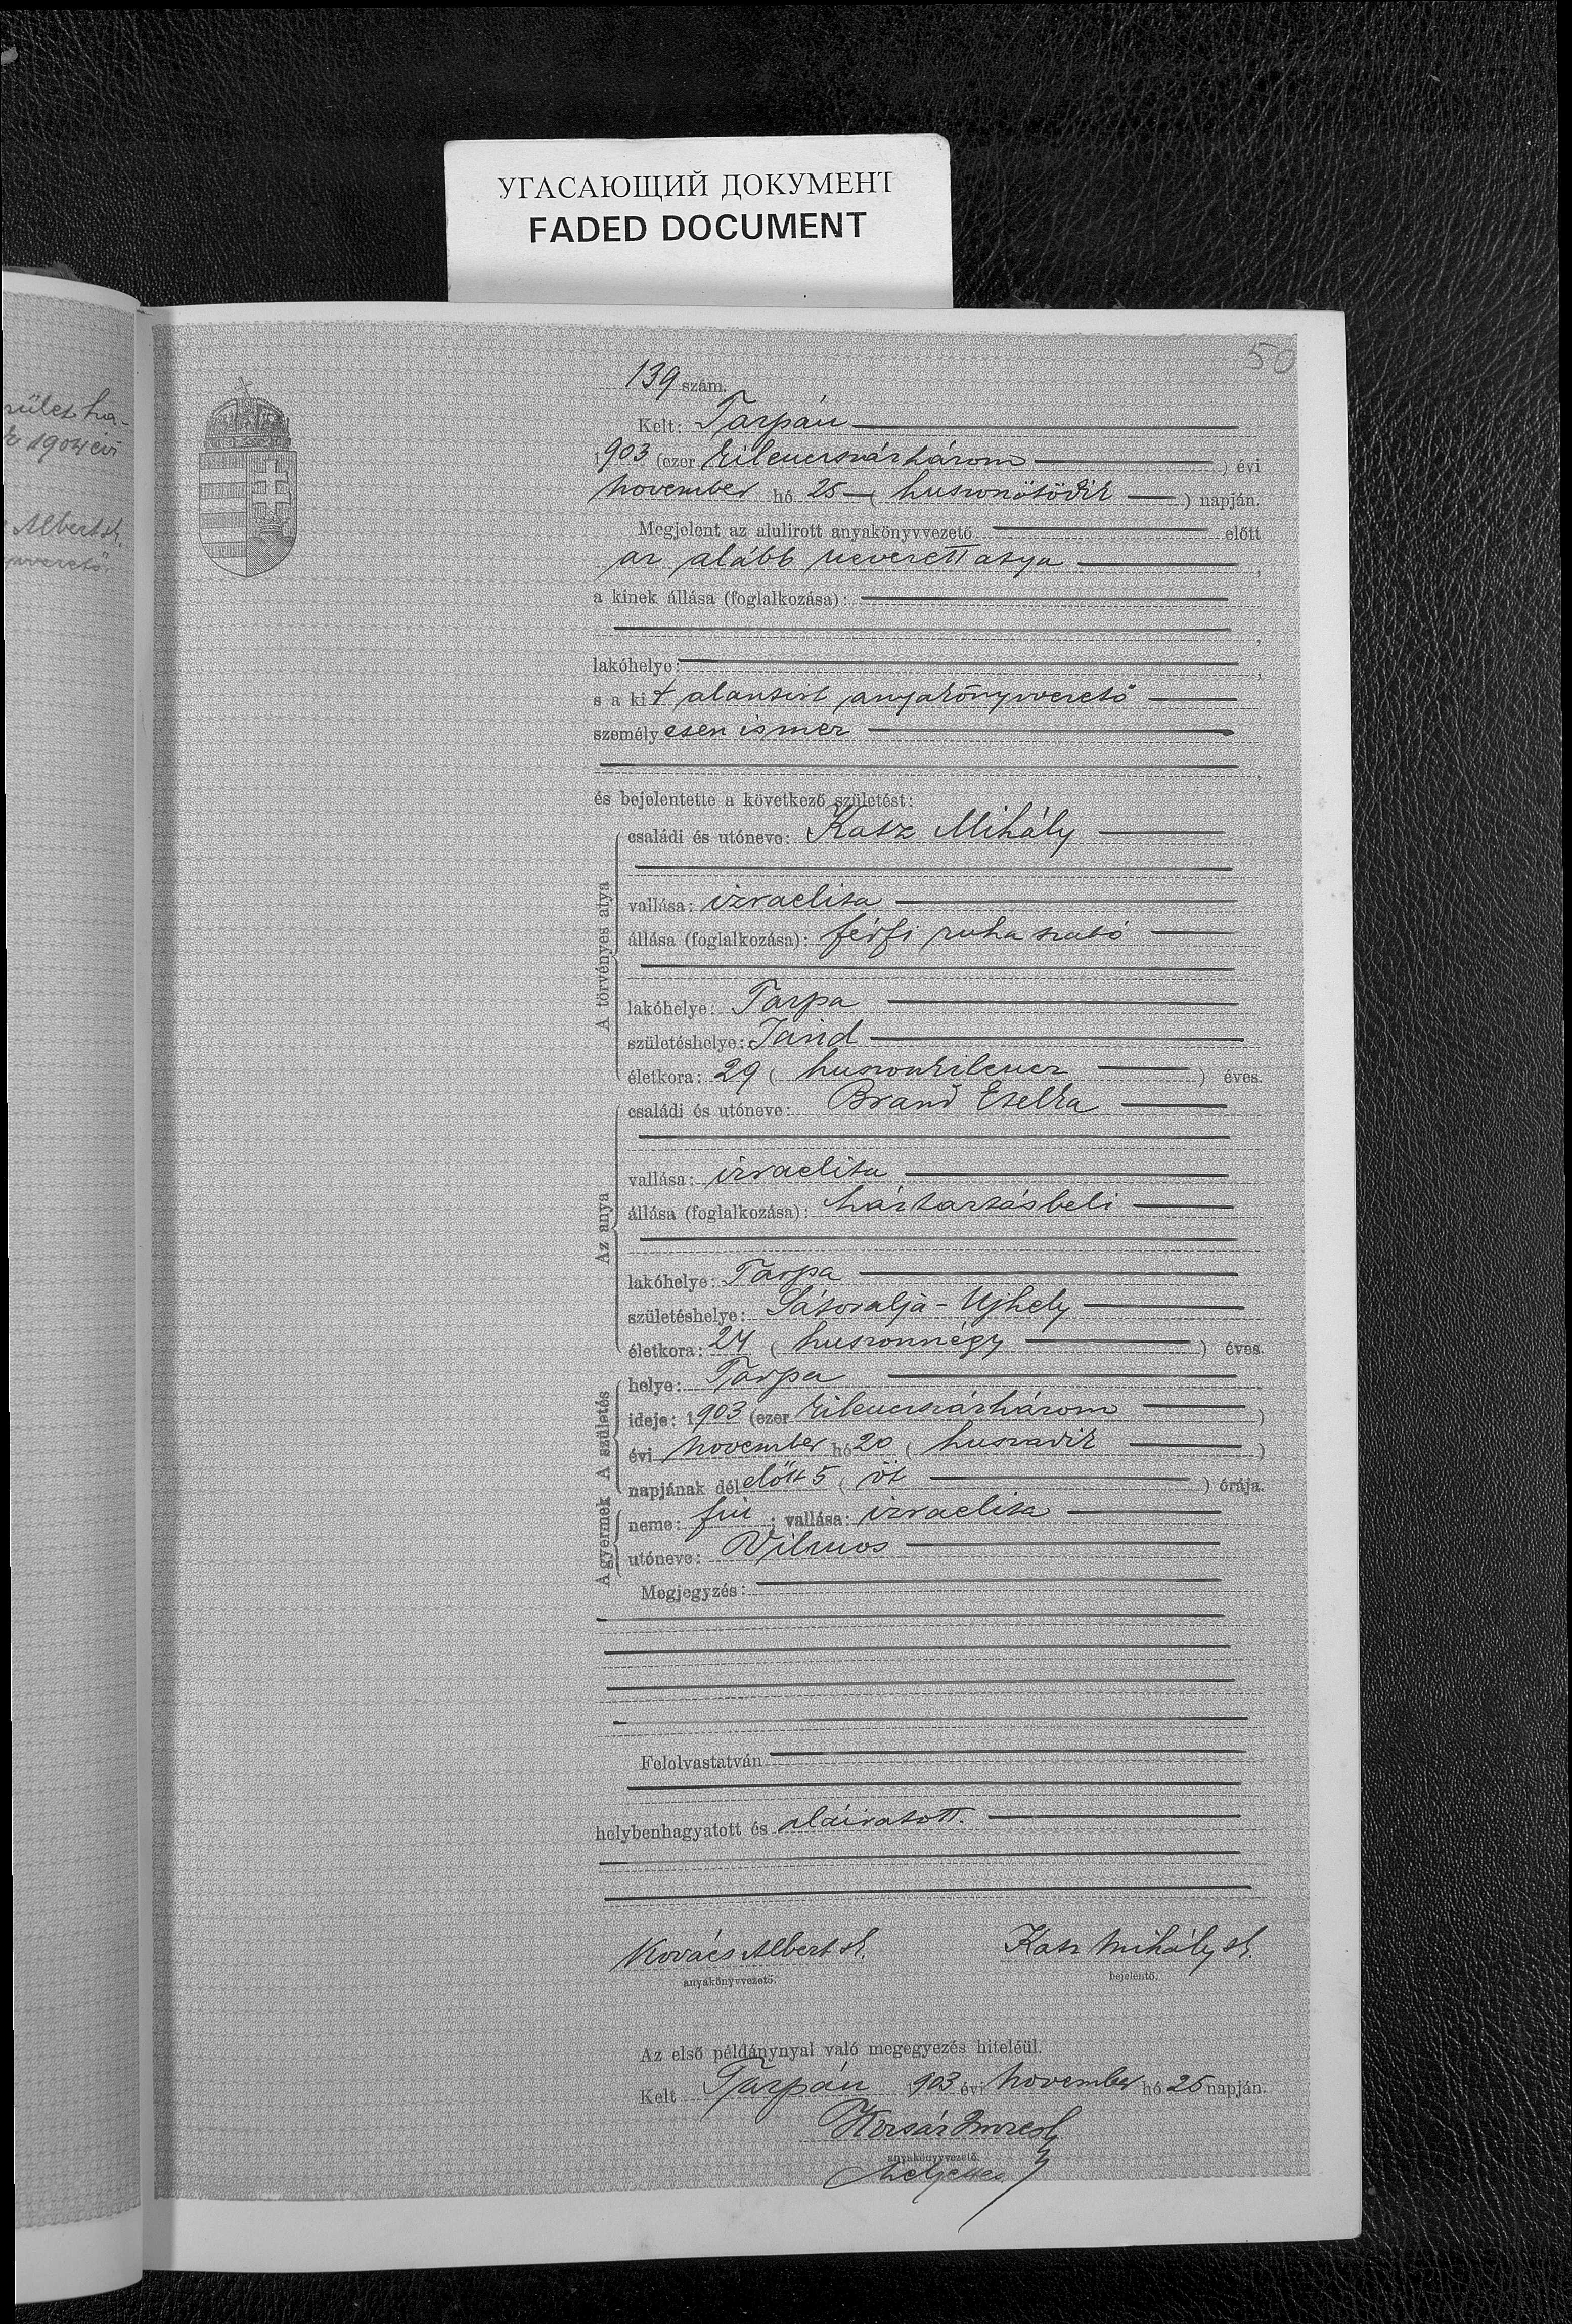 УГАСАЮЩИЙ ДОКУМЕНТ
FADED DOCUMENT
50
139 szám.
Kelt: Tarpán
1903 (ezer kilencszázhárom) évi
november hó 25 (huszonötödik) napján.
Megjelent az alulirott anyakönyvvezető előtt
az alább nevezett atya,
a kinek állása (foglalkozása):
,
lakóhelye: ,
s a kit alantirt anyakönyvvezető
személyesen ismer
,
és bejelentette a következő születést:
A törvényes atya
családi és utóneve: Katz Mihály
vallása: izraelita
állása (foglalkozása): férfi ruha szabó
lakóhelye: Tarpa
születéshelye: Jánd
életkora: 29 (huszonkilencz) éves.
Az anya
családi és utóneve: Brand Etelka
vallása: izraelita
állása (foglalkozása): háztartásbeli
lakóhelye: Tarpa
születéshelye: Sátoralja-Ujhely
életkora: 24 (huszonnégy) éves.
A születés
helye: Tarpa
ideje: 1903 (ezer kilencszázhárom)
évi november hó 20 (huszadik)
napjának délelőtt 5 (öt) órája.
A gyermek
neme: fiu; vallása: izraelita
utóneve: Vilmos
Megjegyzés:
Felolvastatván
helybenhagyatott és aláiratott.
Kovács Albert sk. Katz Mihály sk.
anyakönyvvezető. bejelentő.
Az első példánynyal való megegyezés hiteléül.
Kelt Tarpán 1903 évi november hó 25 napján.
anyakönyvvezető.
helyettes
rület ha-
1904 évi
Albert sk.